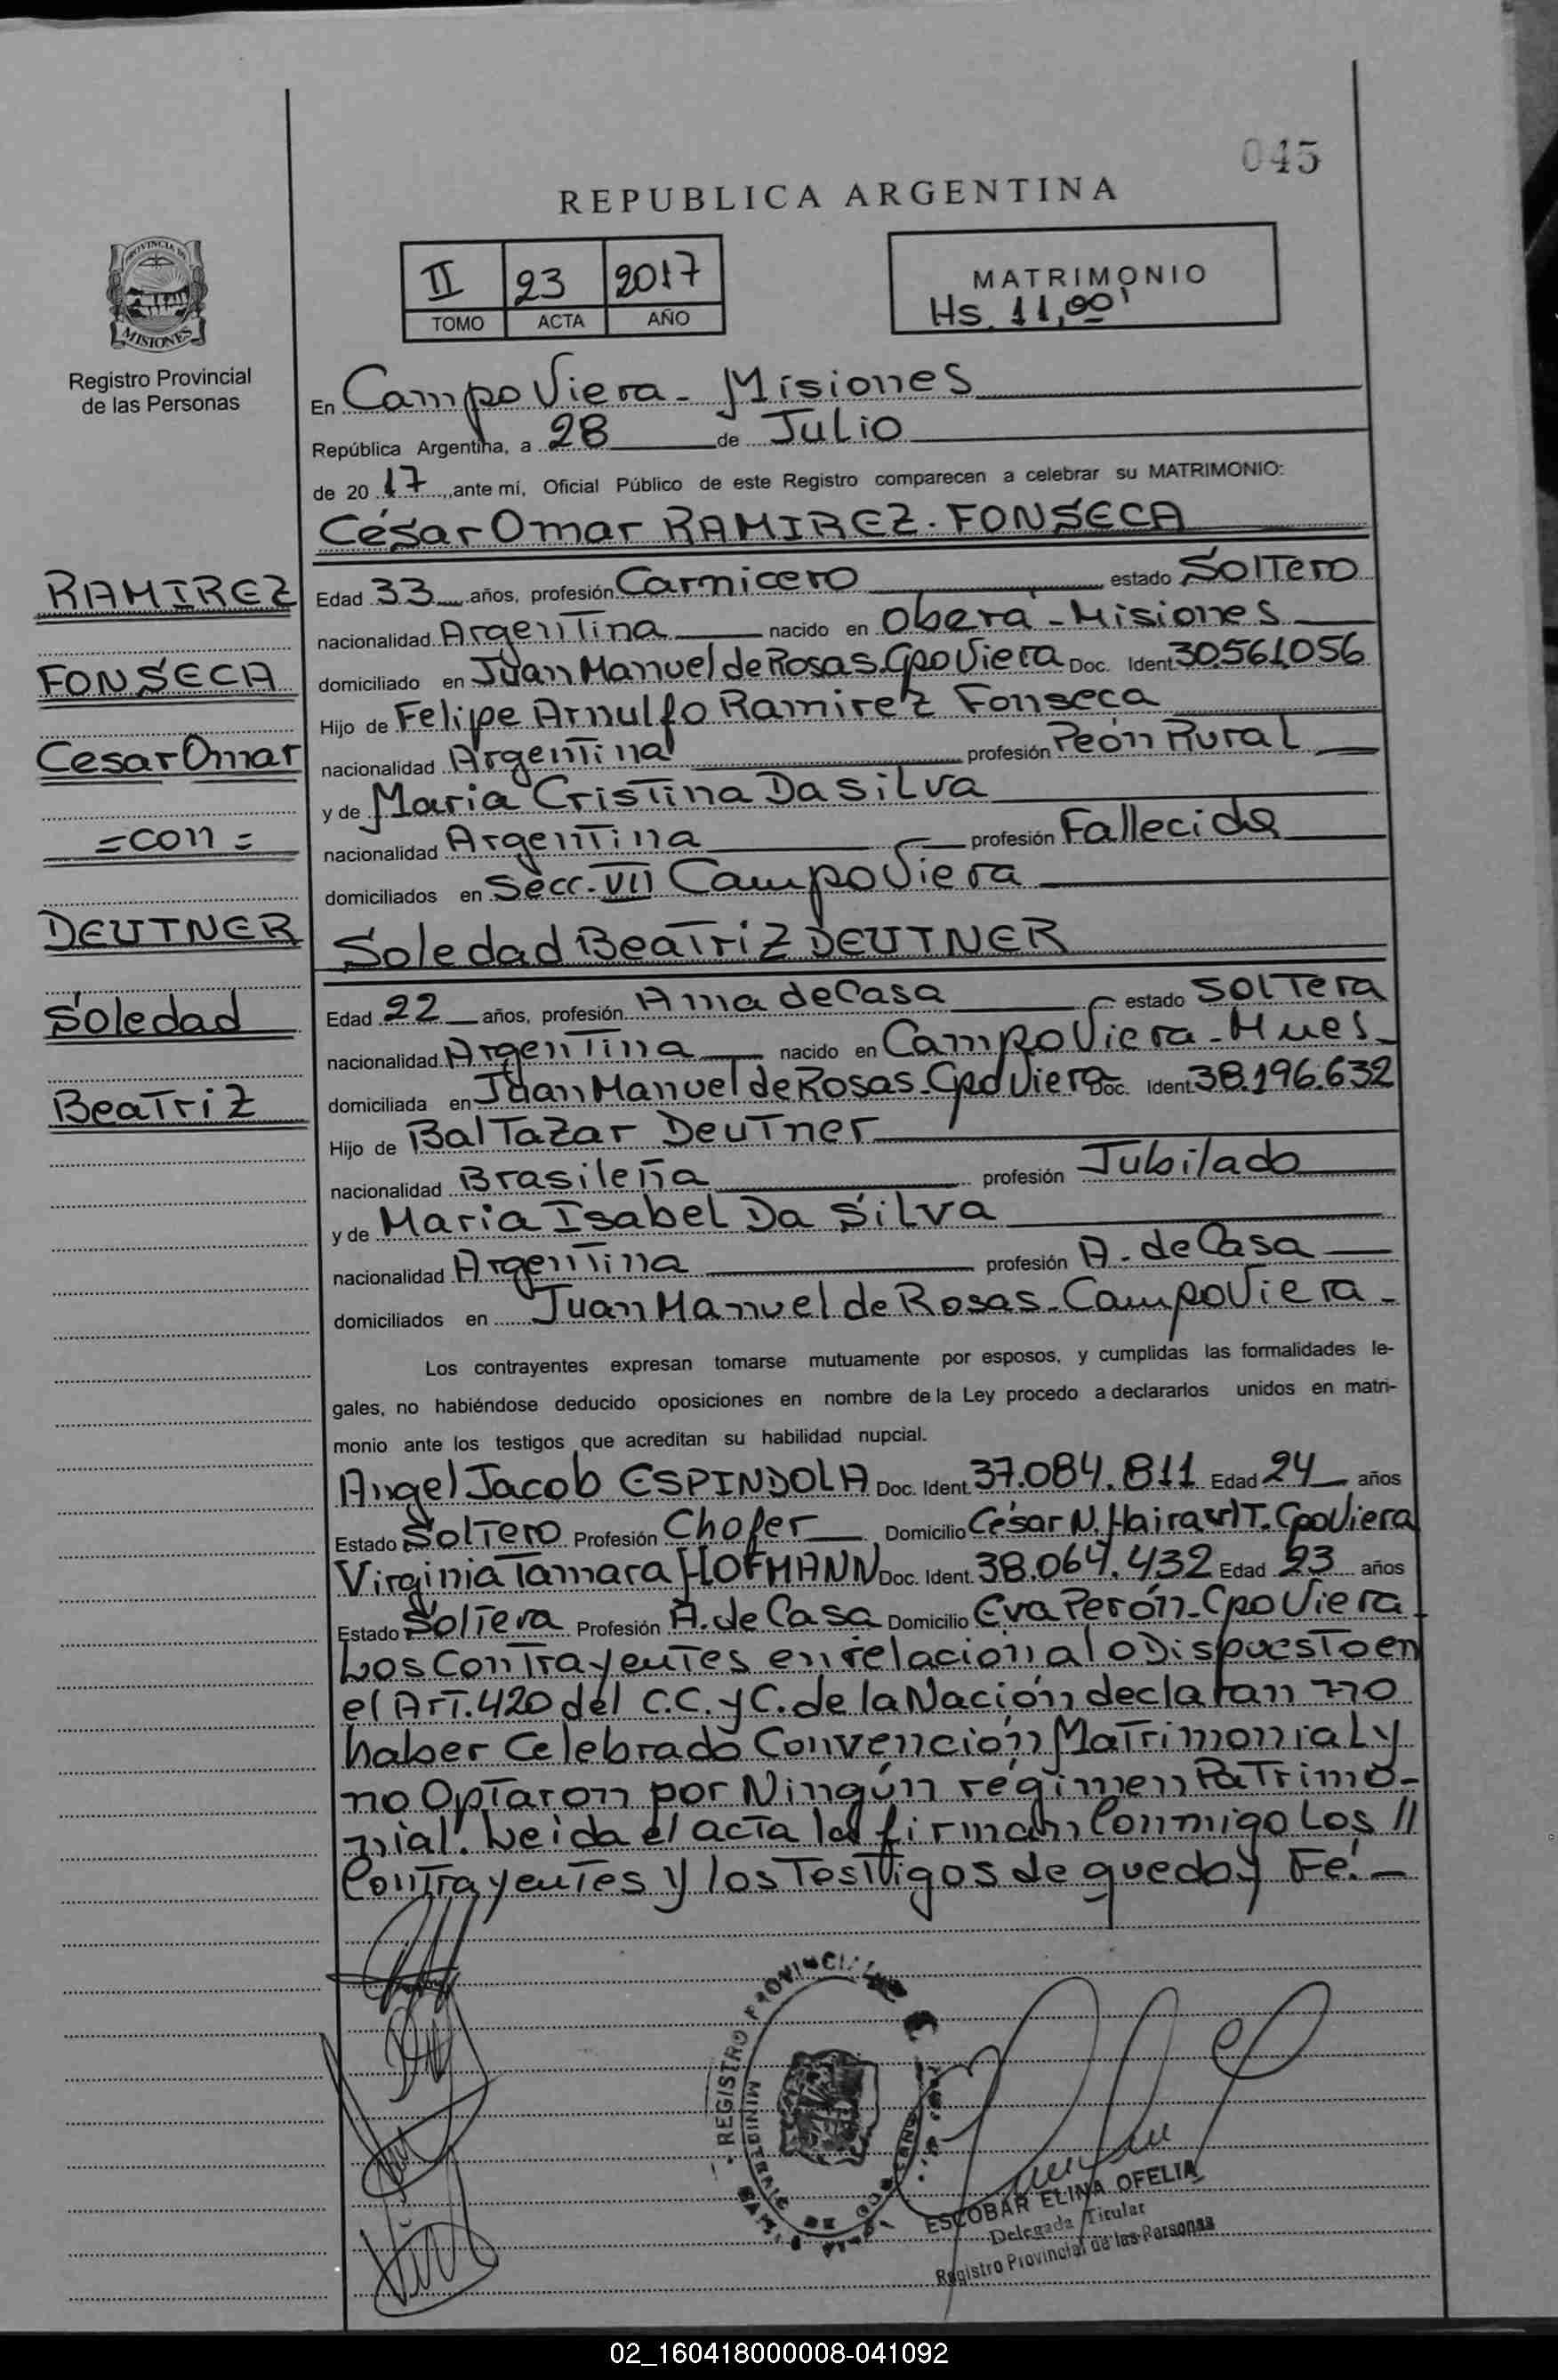 045
REPUBLICA ARGENTINA
PROVINCIA DE
MISIONES
Registro Provincial
de las Personas
II 23 2017
TOMO ACTA AÑO
MATRIMONIO
Hs. 11,00'
En Campo Viera - Misiones
República Argentina, a 28 de Julio
de 20 17, ante mí, Oficial Público de este Registro comparecen a celebrar su MATRIMONIO:
César Omar RAMIREZ. FONSECA
RAMIREZ
FONSECA
Cesar Omar
= con =
DEUTNER
Soledad
Beatriz
Edad 33 años, profesión Carnicero estado Soltero
nacionalidad Argentina nacido en Oberá - Misiones
domiciliado en Juan Manuel de Rosas. Cpo Viera Doc. Ident 30.561.056
Hijo de Felipe Arnulfo Ramirez Fonseca
nacionalidad Argentina profesión Peón Rural
y de Maria Cristina Da Silva
nacionalidad Argentina profesión Fallecida
domiciliados en Secc. VII Campo Viera
Soledad Beatriz DEUTNER
Edad 22 años, profesión Ama de Casa estado Soltera
nacionalidad Argentina nacido en Campo Viera - Mnes.
domiciliada en Juan Manuel de Rosas - Cpo Viera Doc. Ident 38.196.632
Hijo de Baltazar Deutner
nacionalidad Brasileña profesión Jubilado
y de Maria Isabel Da Silva
nacionalidad Argentina profesión A. de Casa
domiciliados en Juan Manuel de Rosas - Campo Viera -
Los contrayentes expresan tomarse mutuamente por esposos, y cumplidas las formalidades le-
gales, no habiéndose deducido oposiciones en nombre de la Ley procedo a declararlos unidos en matri-
monio ante los testigos que acreditan su habilidad nupcial.
Angel Jacob ESPINDOLA Doc. Ident. 37.084.811 Edad 24 años
Estado Soltero Profesión Chofer Domicilio César N. Hairault. Cpo Viera
Virginia Tamara HOFMANN Doc. Ident. 38.064.432 Edad 23 años
Estado Soltera Profesión A. de Casa Domicilio Eva Perón - Cpo Viera
Los contrayentes en relación a lo Dispuesto en
el Art. 420 del C.C. y C. de la Nación declaran no
haber Celebrado Convención Matrimonial y
no Optaron por Ningún régimen Patrimo-
nial. Leida el acta la firman Conmigo Los //
Contrayentes y los Testigos de que doy Fé. -
REGISTRO PROVINCIAL
ESCOBAR ELINA OFELIA
Delegada Titular
Registro Provincial de las Personas
02_160418000008-041092